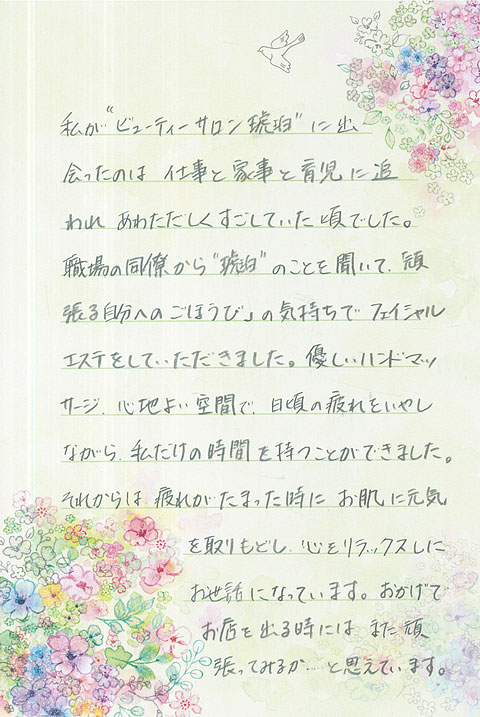 私が"ビューティーサロン琥珀"に出
会ったのは 仕事と家事と育児に追
われ あわただしくすごしていた頃でした。
職場の同僚から"琥珀"のことを聞いて、「頑
張る自分へのごほうび」の気持ちで フェイシャル
エステをしていただきました。優しいハンドマッ
サージ、心地よい空間で、日頃の疲れをいやし
ながら、私だけの時間を持つことができました。
それからは 疲れがたまった時に お肌に元気
を取りもどし、心をリラックスしに
お世話になっています。おかげで
お店を出る時には また頑
張ってみるか…と思えています。